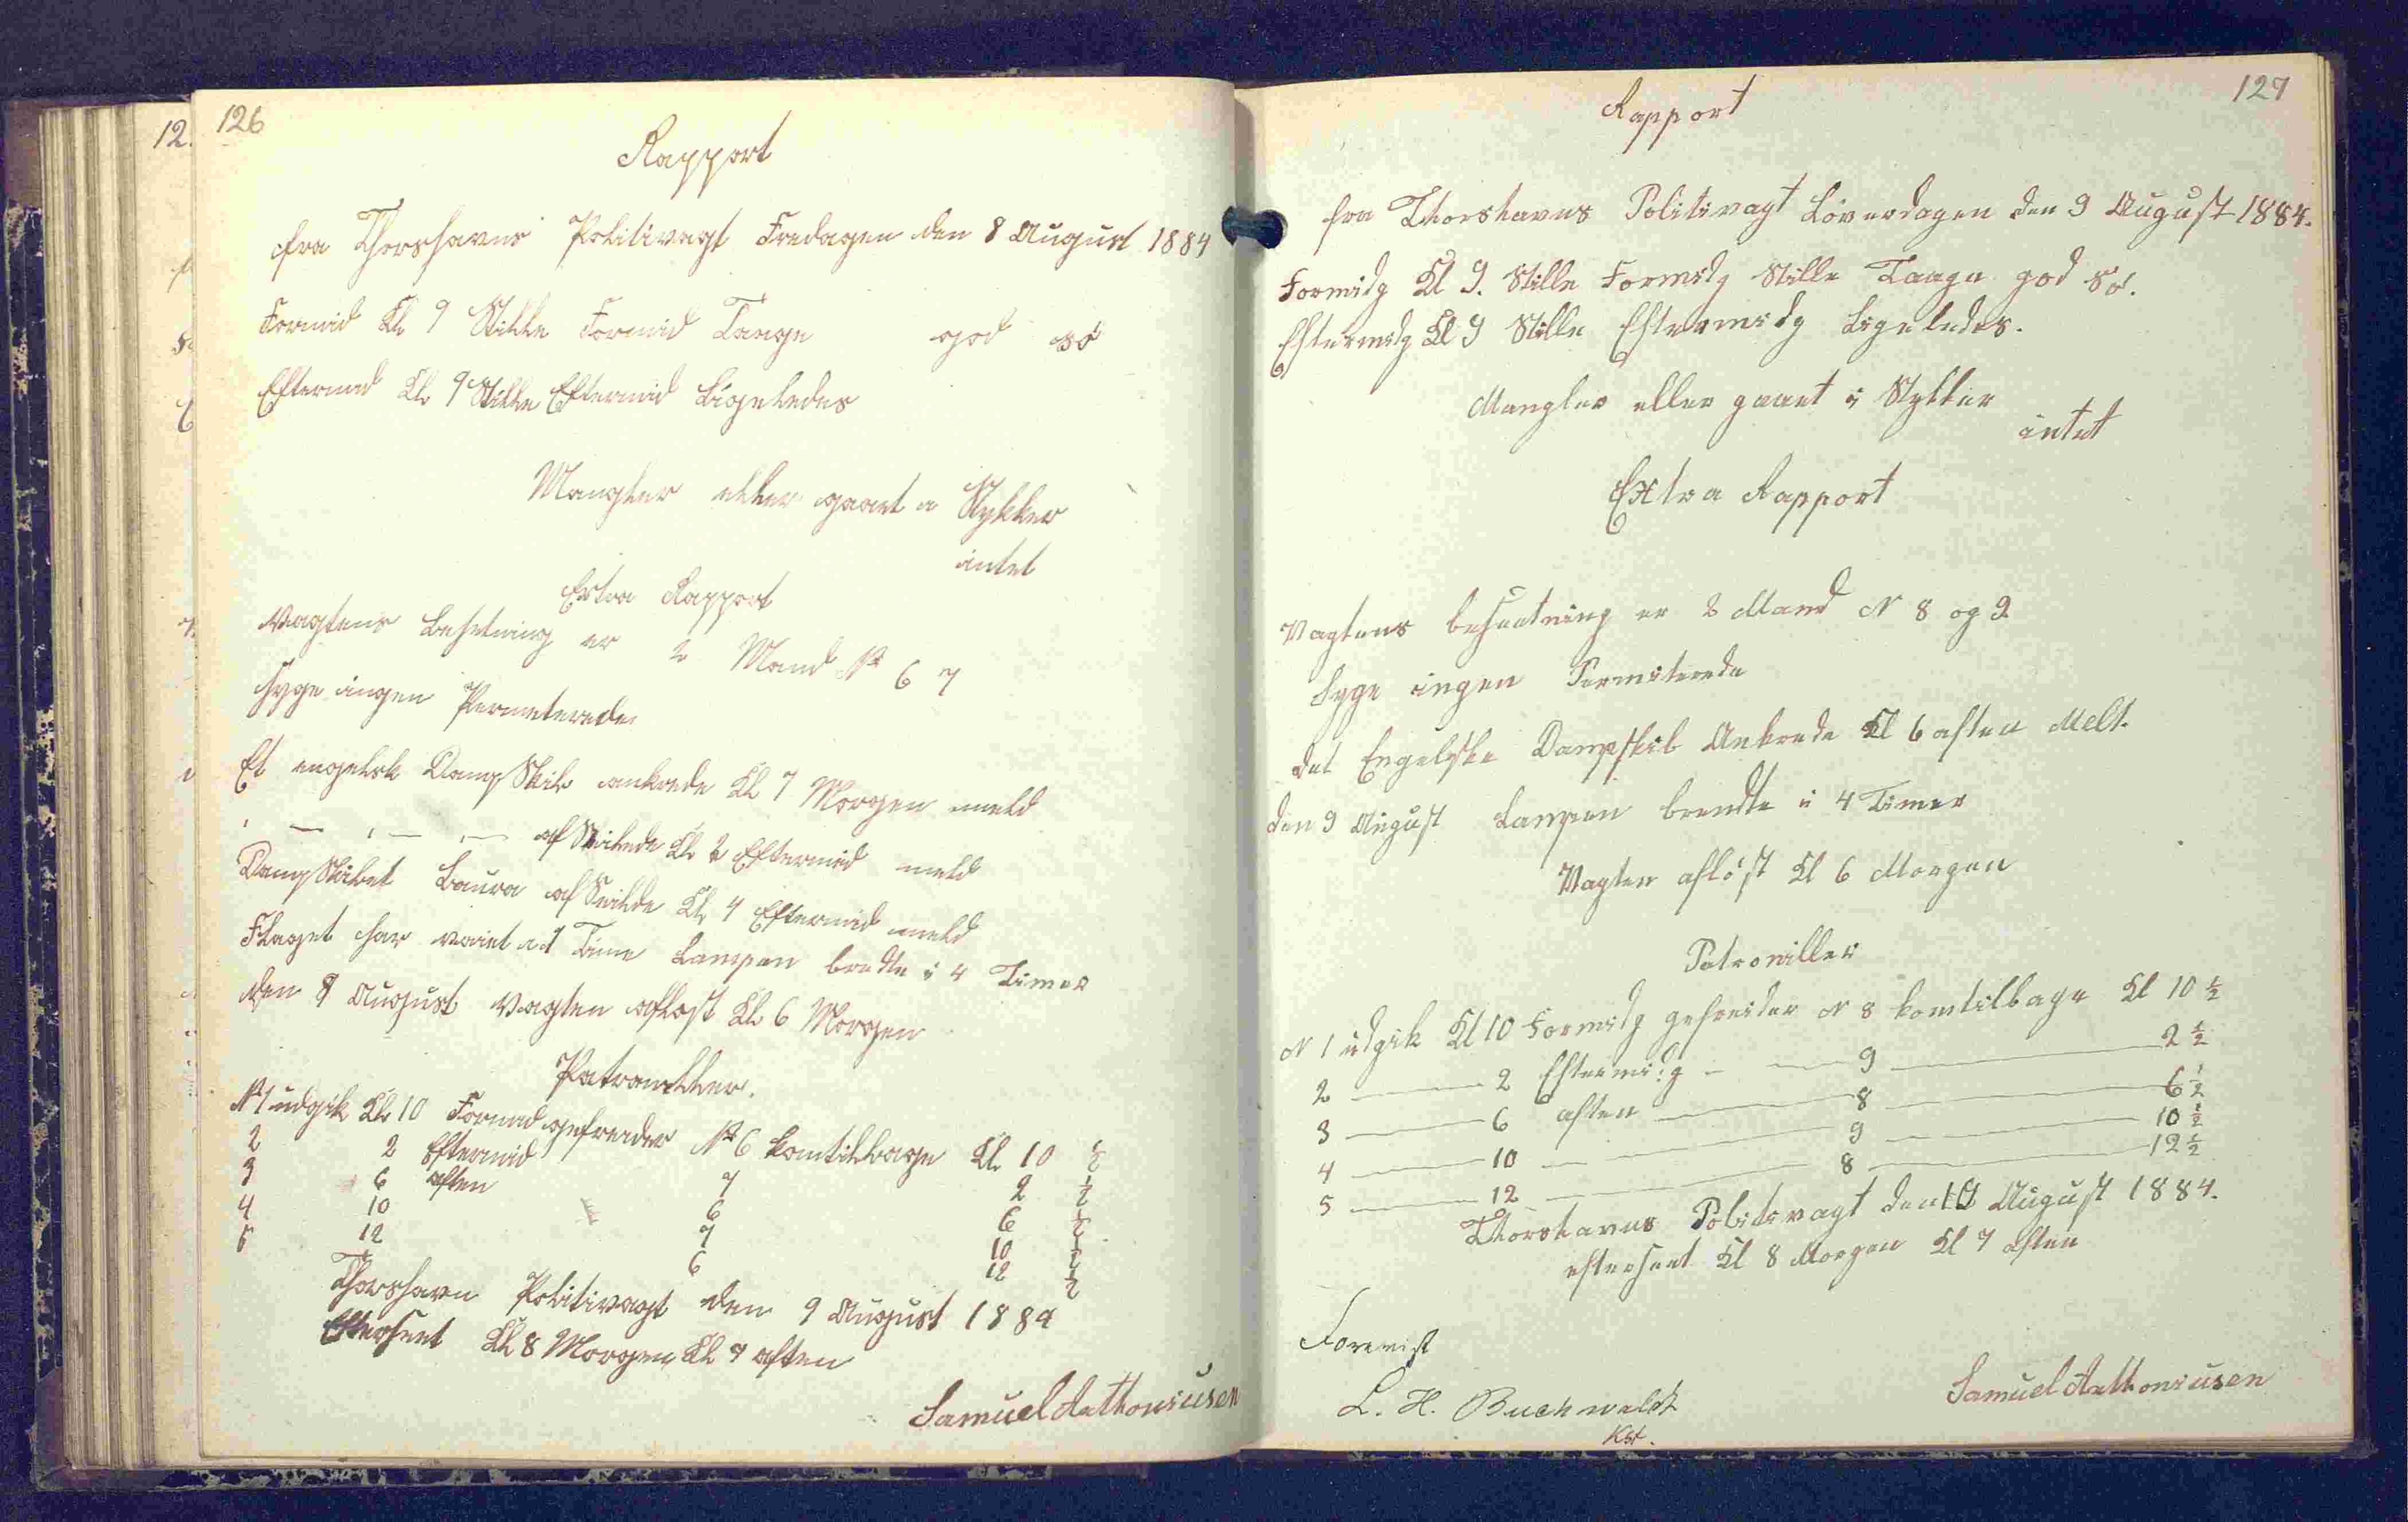 126
Rapport
fra Thorshavns Politivagt Fredagen den 8 August 1884
Formid Kl 9 Stille Formid Taage god sö
Eftermid Kl 9 Stille Eftermid Ligeledes
Mangler eller gaaet i Stykker
intet
Extra Rapport
Vagtens Besetning er 2 Mand № 6 7
Syge ingen Permeterede
Et engelsk DampSkib ankrede Kl 7 Morgen meld
" — " — " — afSeilede Kl 2 Eftermid meld
DampSkibet Laura afSeilde Kl 4 Eftermid meld
Flaget har vaiet i 1 Time Lampen bredte i 4 Timer
den 8 August Vagten aflöst Kl 6 Morgen
Patrouller.
№ 1 udgik Kl 10 Formid gefreider № 6 komtilbage Kl 10 ½
2 2 Eftermid 7 2 ½
3 6 aften 6 6 ½
4 10 7 10 ½
5 12 6 12 ½
Thorshavn Politivagt den 9 August 1884
Efterseet Kl 8 Morgen Kl 7 aften
Samuel Anthoniusen
127
Rapport
fra Thorshavns Politivagt Löverdagen den 9 August 1884.
Formidg Kl 9. Stille Formidg Stille Taage god Sö.
Eftermidg Kl 9 Stille Eftermidg Ligeledes.
Mangler eller gaaet i Stykker
intet
Extra Rapport
Vagtens besaetning er 2 Mand N 8 og 9
Syge ingen Permiterede
det Engelske Dampskib Ankrede Kl 6 aften Melt.
den 9 August Lampen brendte i 4 Timer
Vagten aflöst Kl 6 Morgen
Patrouiller
N 1 udgik Kl 10 Formidg gefreider N 8 komtilbage Kl 10 ½
2 — 2 Eftermidg — 9 — 2 ½
3 — 6 aften — 8 — 6 ½
4 — 10 — 9 — 10 ½
5 — 12 — 8 — 12 ½
Thorshavns Politivagt den 10 August 1884.
efterseet Kl 8 Morgen Kl 7 Aften
Forevist
L. H. Buchwaldt
Kst.
Samuel Anthoniusen